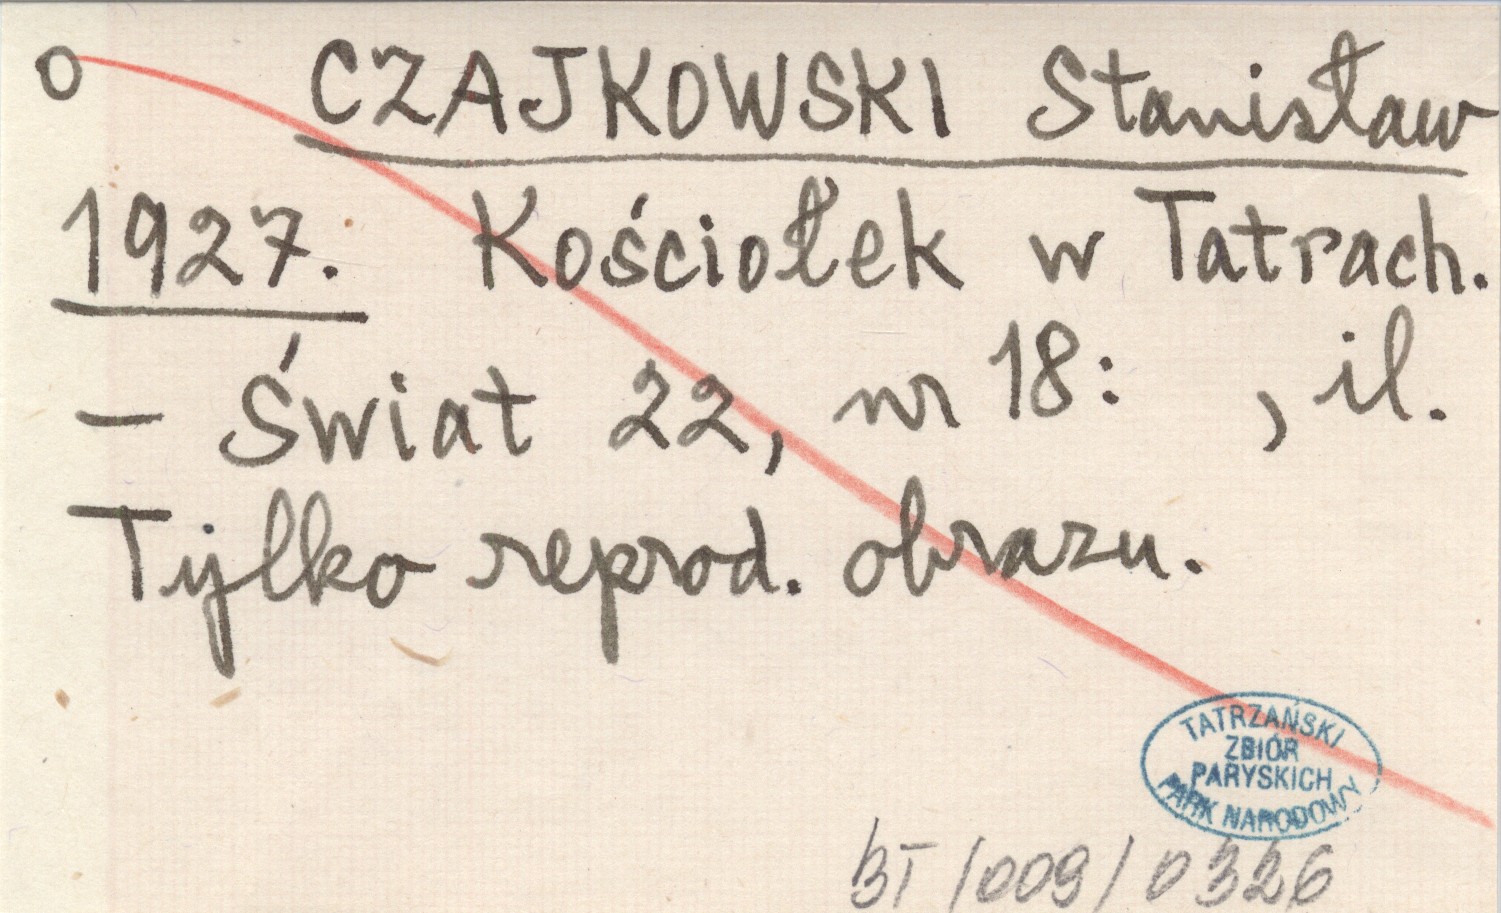 o CZAJKOWSKI Stanisław
1927. Kościołek w Tatrach.
– Świat 22, nr 18: , il.
Tylko reprod. obrazu.
TATRZAŃSKI
ZBIÓR
PARYSKICH
PARK NARODOWY
BT/009/0326